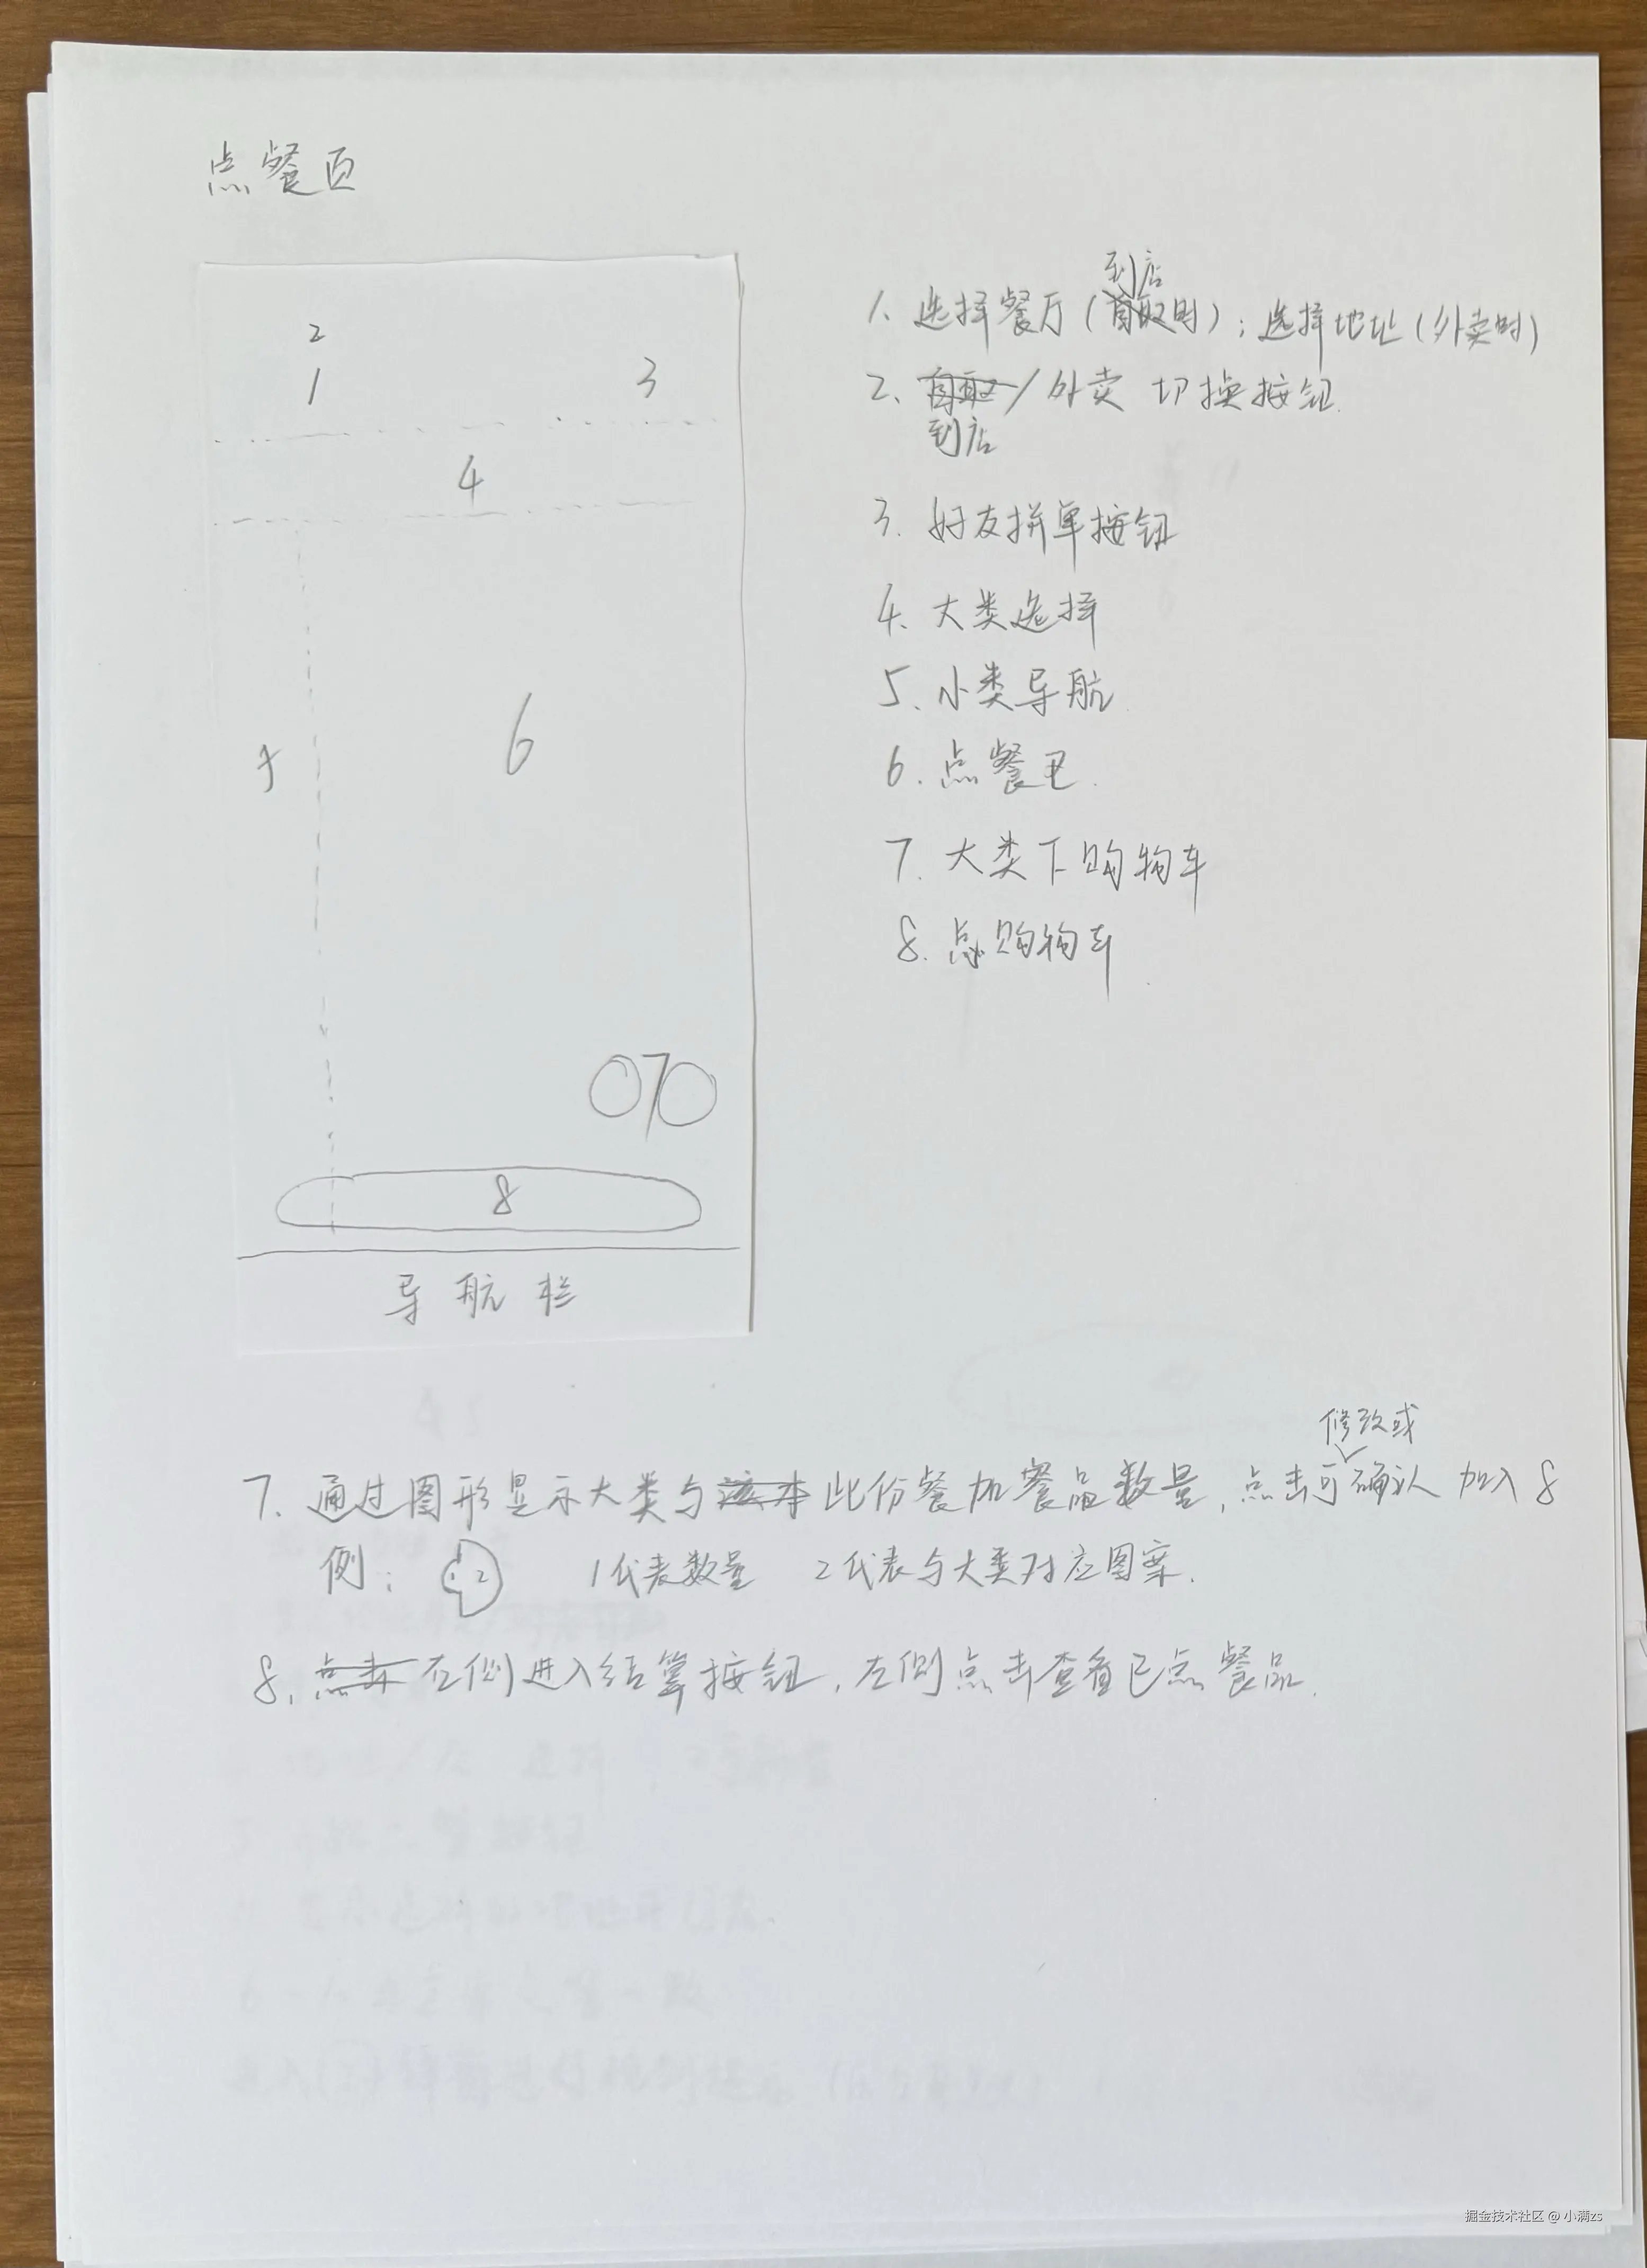 点餐页
2
1
3
4
5
6
7
8
导航栏
1、选择餐厅(到店时);选择地址(外卖时)
2、到店/外卖 切换按钮
3.好友拼单按钮
4、大类选择
5、小类导航
6.点餐
7.大类下购物车
8.总购物车
7.通过图形显示大类与此份餐加餐品数量,点击可修改或确认加入8
例: 1 2 1代表数量 2代表与大类对应图案.
8.右侧进入结算按钮,左侧点击查看已点餐品.
掘金技术社区 @ 小满zs